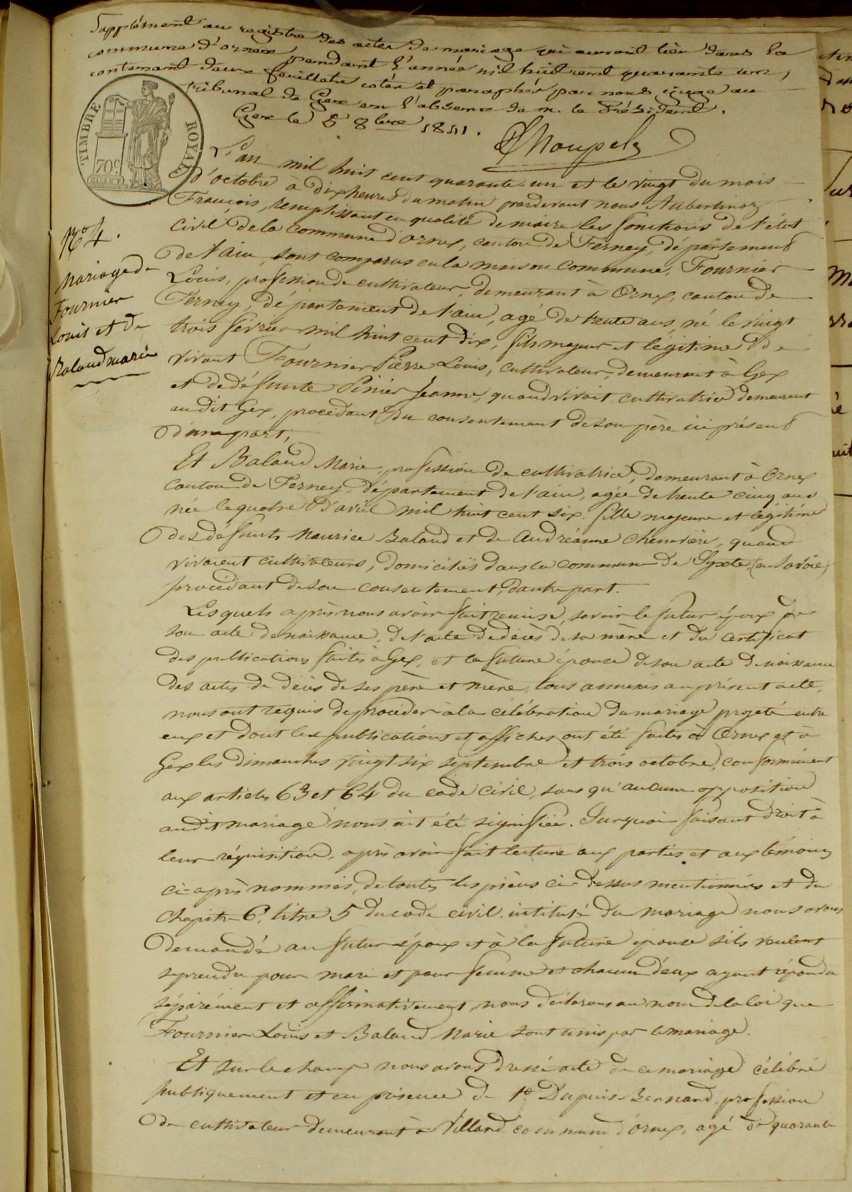 Supplément au registre des actes de mariage qui auront lieu dans la
commune d'ornex, pendant l'année mil huit cent quarante un,
contenant deux feuillets coté et paraphés par nous, juge au
tribunal de Gex en l'absence de m. le Président.
Gex le 8bre 1841.
TIMBRE ROYAL
70c
L'an mil huit cent quarante un et le vingt du mois
d'octobre à dix heures du matin, pardevant nous
François, remplissant en qualité de maire les fonctions de l'état
civil de la commune d'Ornex, canton de Ferney, département
de l'ain, sont comparus en la maison commune, Fournier
Louis, profession de cultivateur demeurant à Ornex, canton de
Ferney, département de l'ain, agé de trente ans, né le vingt
trois février mil huit cent dix, fils majeur et légitime de
vivant Fournier Pierre Louis, cultivateur, demeurant à Gex
et de défunte Jeanne, quand vivait cultivatrice demeurant
audit Gex, procédant du consentement de son père ici présent
d'une part,
No 4.
Mariage de
Fournier
Louis et de
Balaud marie
Et Balaud Marie, profession de cultivatrice, demeurant à Ornex
canton de Ferney, département de l'ain, agée de trente cinq ans
née le quatre d'avril mil huit cent six, fille majeure et légitime
des défunts Maurice Balaud et de Andréanne quand
vivaient cultivateurs, domiciliés dans la commune de (en Savoie)
procédant de son consentement, d'autre part.
Lesquels après nous avoir fait remise, savoir le futur époux de
son acte de naissance, de l'acte de décès de sa mère et du certificat
des publications faites à Gex, et la future épouse de son acte de naissance
des actes de décès de ses père et mère, tous annexés au présent acte,
nous ont requis de procéder à la célébration du mariage projeté entre
eux et dont les publications et affiches ont été faites à Ornex et à
Gex les dimanches vingt six septembre et trois octobre, conformément
aux articles 63 et 64 du code civil, sans qu'aucune opposition
audit mariage nous ait été signifiée. Surquoi faisant droit à
leur réquisition, après avoir fait lecture aux parties et aux témoins
ci-après nommés, de toutes les pièces ci-dessus mentionnées et du
chapitre 6, titre 5 du code civil, intitulé du mariage nous avons
demandé au futur époux et à la future épouse s'ils veulent
se prendre pour mari et pour femme et chacun d'eux ayant répondu
séparément et affirmativement, nous déclarons au nom de la loi que
Fournier Louis et Balaud Marie sont unis par le mariage.
Et sur le champ nous avons dressé acte de ce mariage célébré
publiquement et en présence de 1o Dupuis Bernard, profession
de cultivateur demeurant à Villard commune d'ornex, agé de quarante